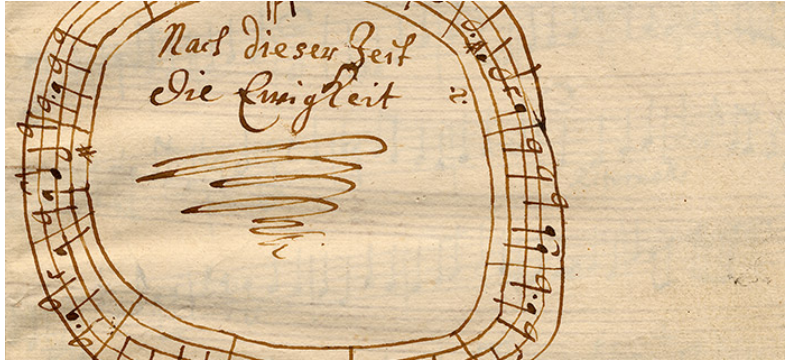 Nach dieser Zeit
die Ewigkeit